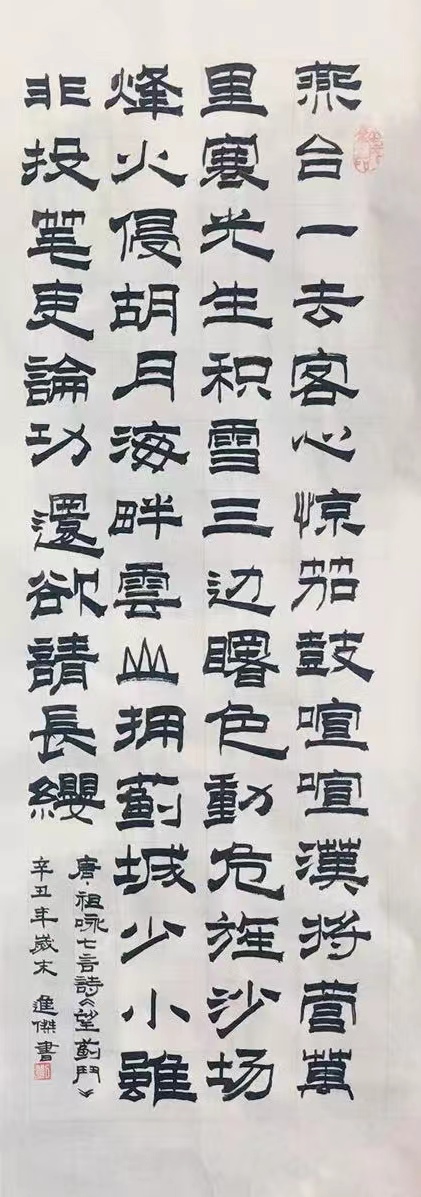 燕台一去客心惊笳鼓喧喧漢将营萬
里寒光生积雪三边曙色動危旌沙场
烽火侵胡月海畔雲山拥薊城少小雖
非投筆吏論功還欲請長纓
唐·祖咏七言詩《望薊門》
辛丑年歲末 進傑書